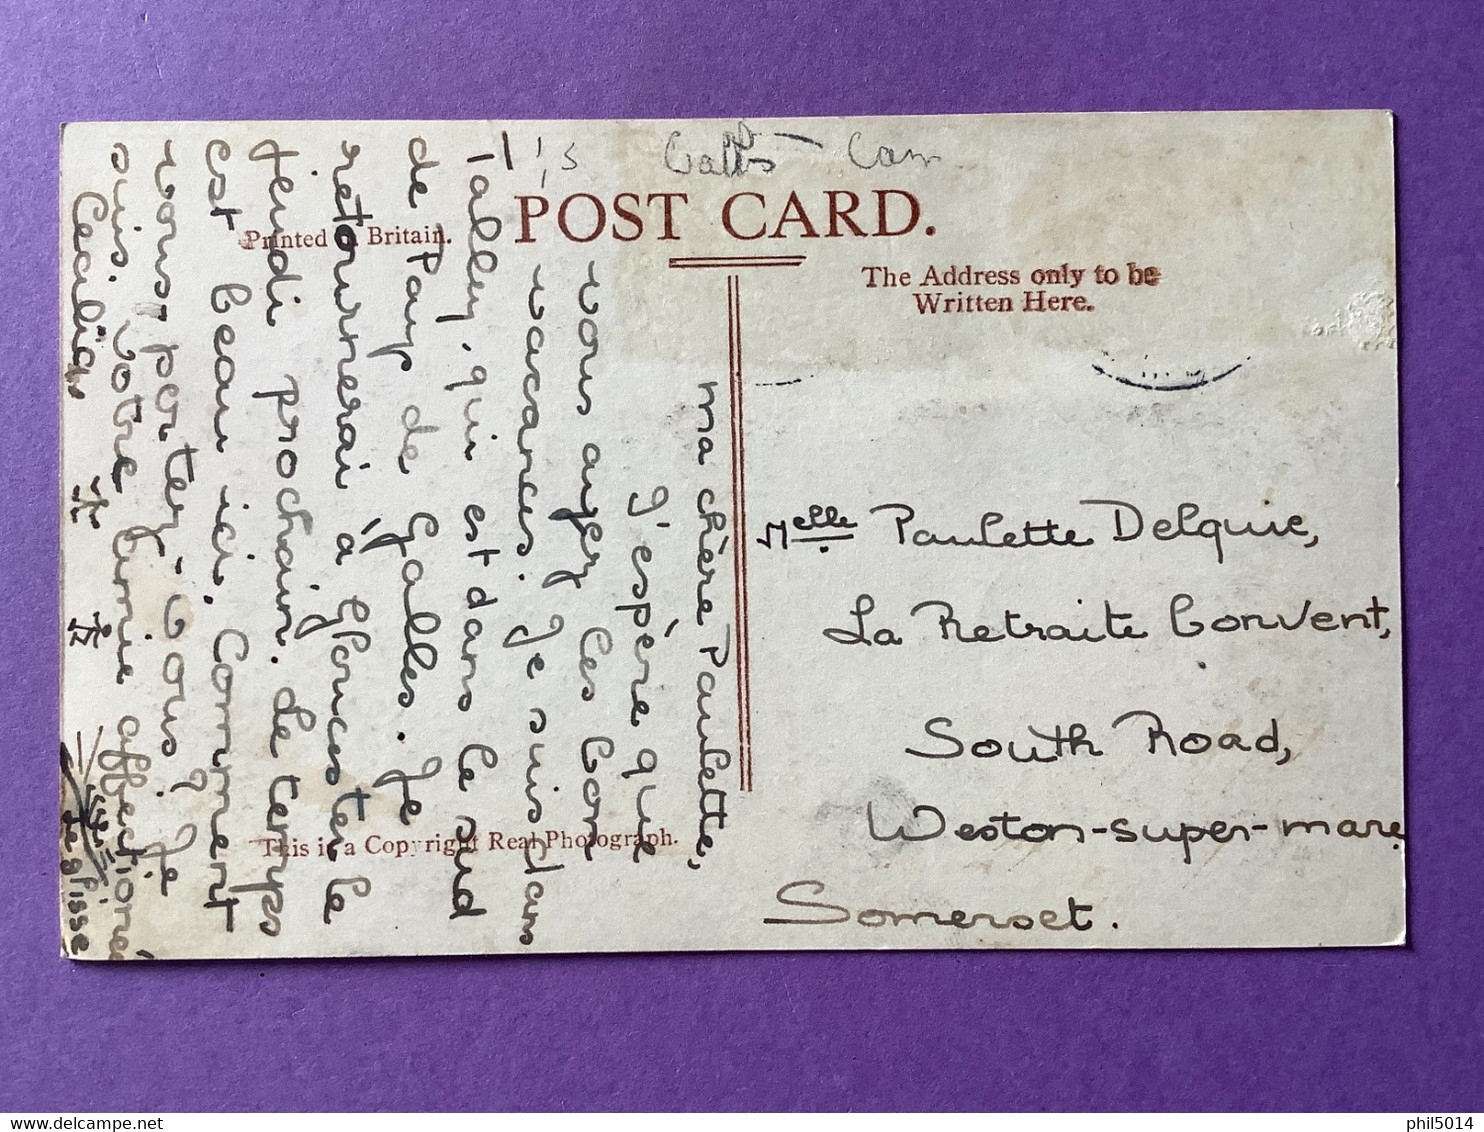 Galls - Cam
POST CARD.
Printed in Britain.
The Address only to be
Written Here.
This is a Copyright Real Photograph.
Ma chère Paulette,
J'espère que
vous ayez les bon
vacances. Je suis dans
Talley, qui est dans le sud
de Pays de Galles. Je
retournerai à Gloucester le
jeudi prochain. Le temps
est beau ici. Comment
vous portez-vous? Je
suis votre amie affectionée
Cecilia
Melle Paulette Delquie,
La Retraite Convent,
South Road,
Weston-super-mare
Somerset.
delcampe.net
phil5014